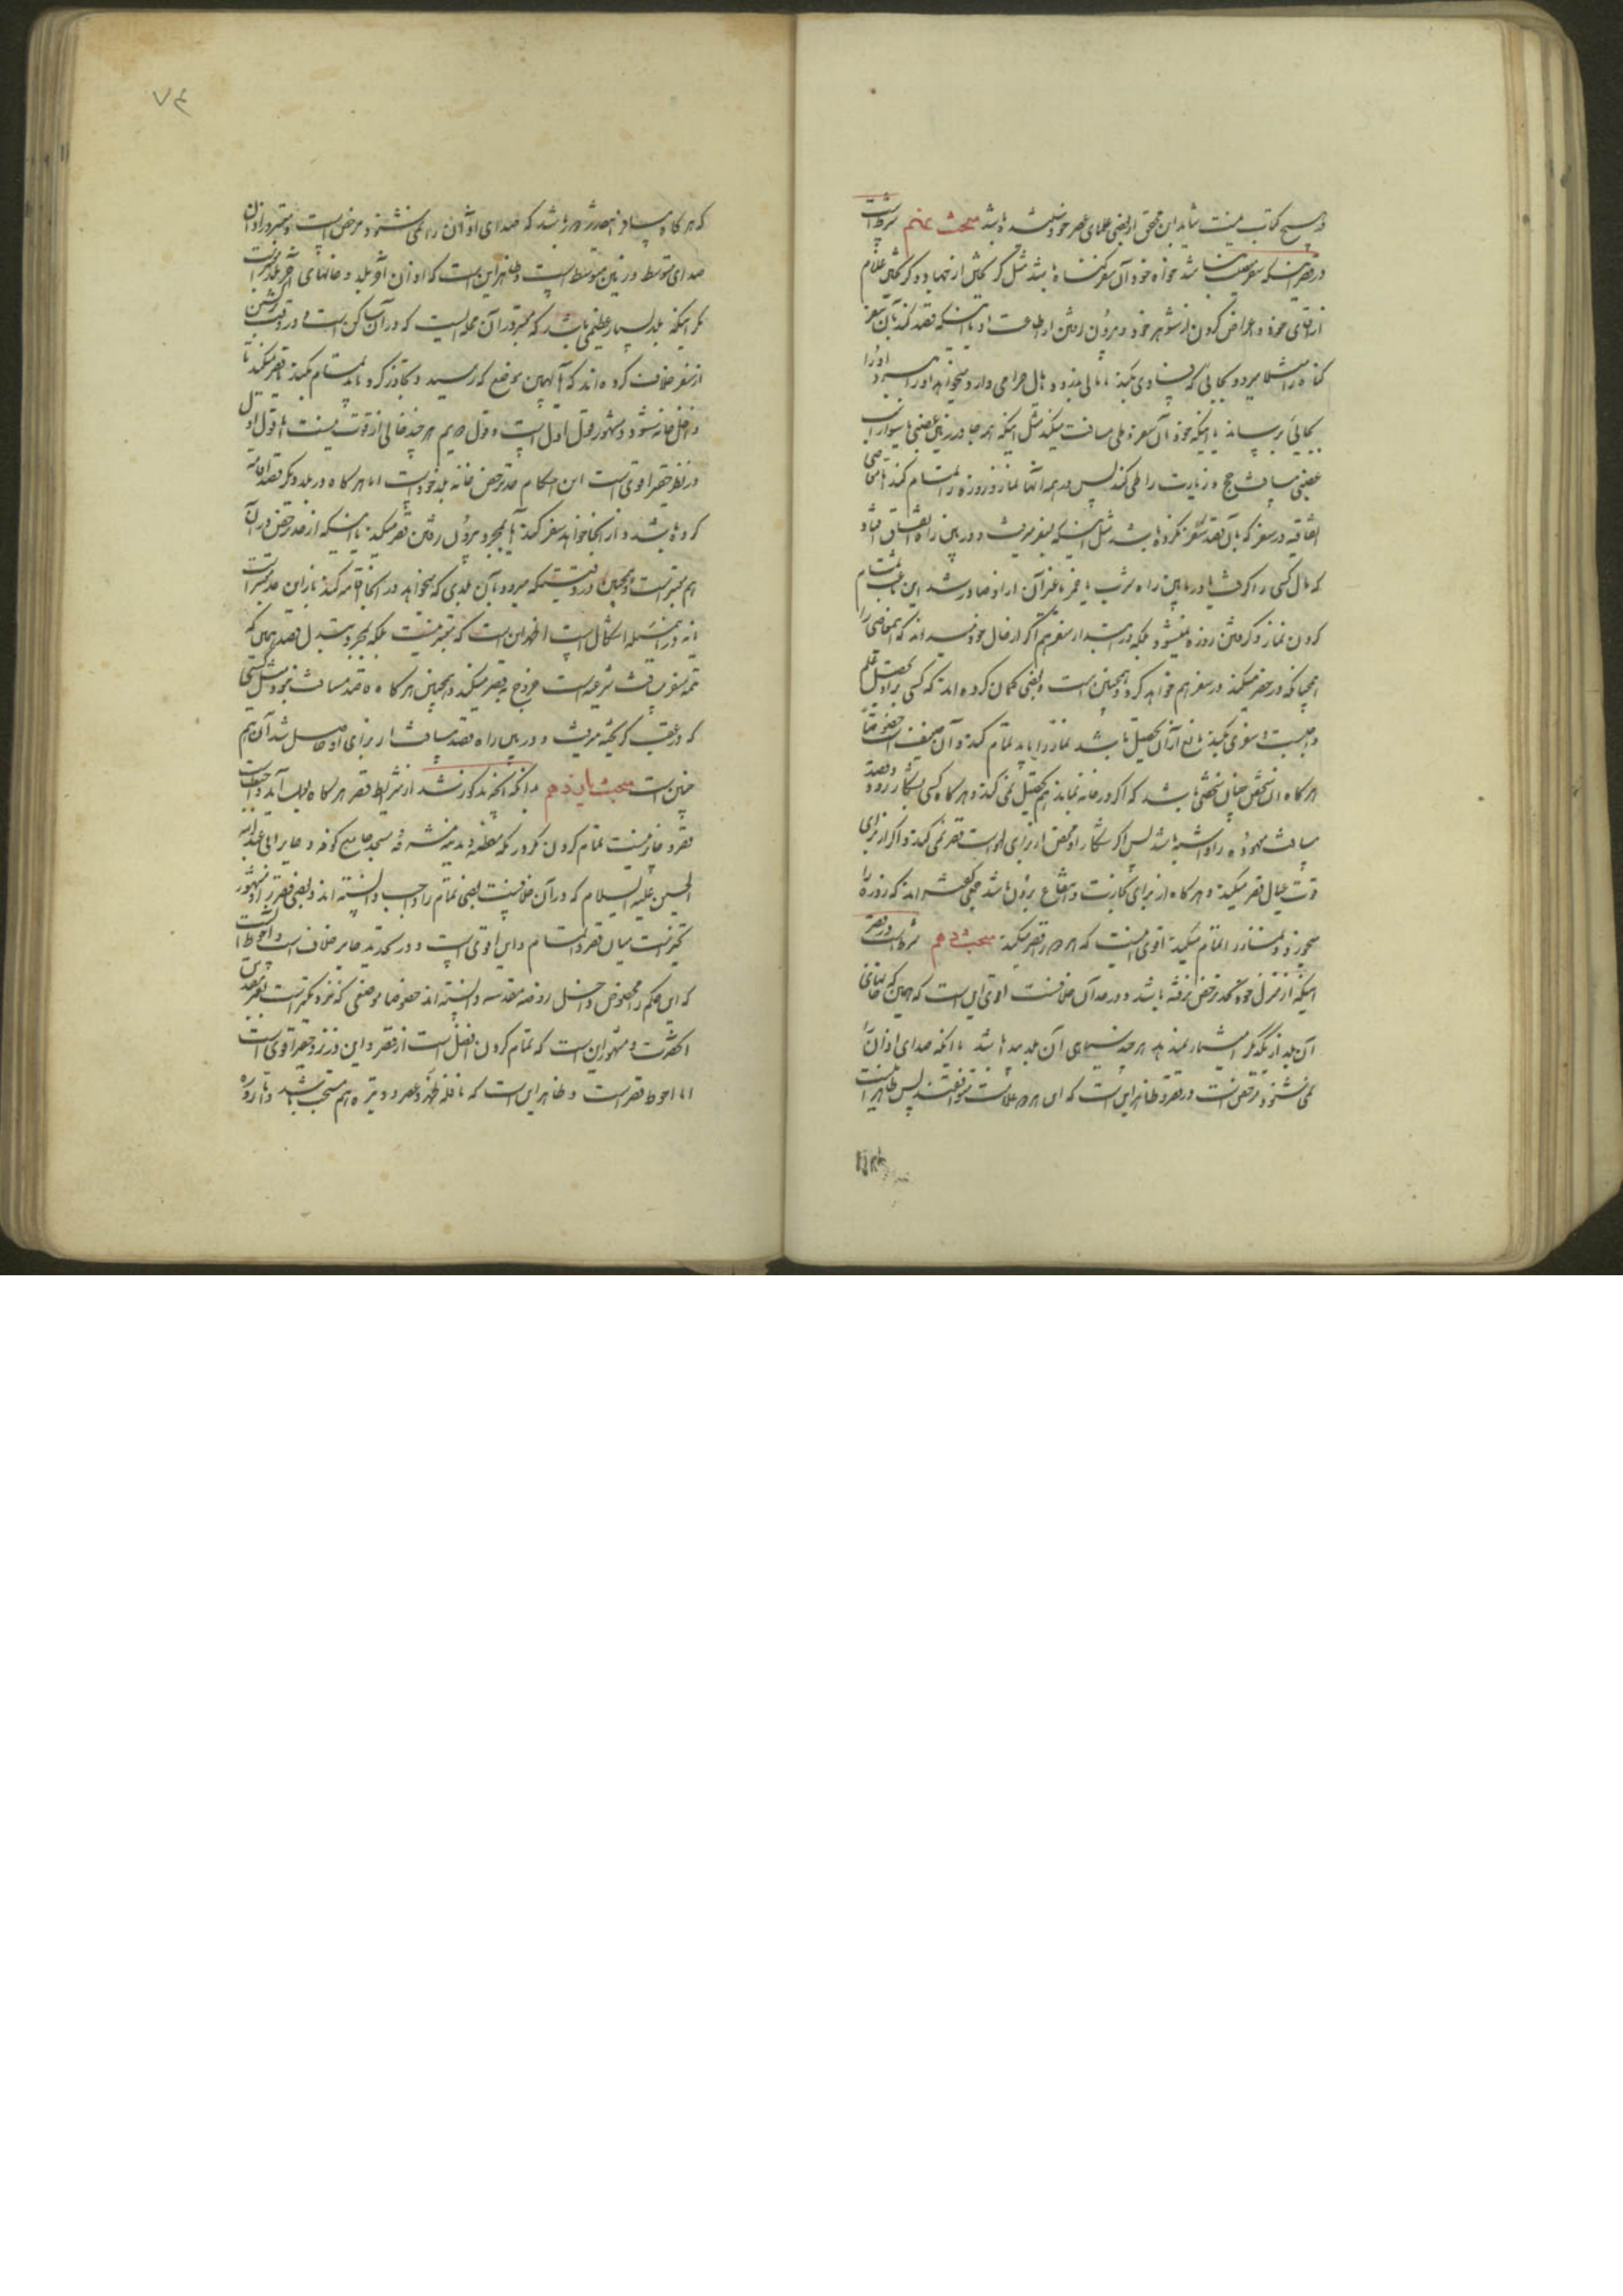 در هیچ کتاب نیست شاید این تحقق از بعضی علمای عصر خود شنیده باشد مبحث نهم شرط است
در قصر اینکه سفر معصیت نباشد خواه خود آن سفر گناه باشد مثل گریختن از جهاد و گریختن غلام
از آقای خود و اعراض کردن از شوهر خود و بیرون رفتن از اطاعت او یا اینکه قصد کند بآن سفر
گناه را مثلا میرود بجائی که فساد کند یا مالی بدزدد یا مال حرامی دارد میخواهد او را ببرد او را
بجائی برساند یا اینکه خود آن سفر نه طی مسافت میکند مثل اینکه همه جا در زمین غصبی یا سوار اسب
غصبی مسافت حج و زیارت را طی کند پس در همه آنها نماز و روزه را تمام کند اما معاصی
اتفاقیه در سفر که بآن قصد سفر نکرده باشد مثل اینکه بسفر میرفت و در بین راه اتفاق افتاد
که مال کسی را گرفت یا در مابین راه شرب یا خمر یا غیر آن از او صادر شد این باعث تمام
کردن نماز و گرفتن روزه نمیشود بلکه در ابتدای سفر هم اگر از حال خود میداند که معاصی را
همچنانکه در حضر میکند در سفر هم خواهد کرد و همچنین است و بعضی گمان کرده اند که کسی که بر او تحصیل علم
واجب است و سفری بکند مانع از آن تحصیل باشد نماز را باید تمام کند و آن ضعیف است خصوصا
هر گاه آن شخص چنان شخصی باشد که اگر در خانه نماند هم تحصیل نمی کند و هر گاه کسی بشکار رود و قصد
مسافت معهوده را داشته باشد پس اگر شکار او محض از برای لهو است قصر نمی کند و اگر از برای
قوت عیال قصر میکند و هر گاه از برای تجارت و انتفاع بردن باشد جمعی گفته اند که روزه را
میخورد و نماز را تمام میکند اقوی اینست که هر دو را قصر میکند مبحث دهم شرط است در قصر
اینکه از منزل خود بحد ترخص رفته باشد و در حد آن خلافست اقوی این است که همین که خانهای
آن بلد از یکدیگر امتیاز ندهد هر چند سیاهی آن بلد پیدا باشد یا اینکه صدای اذان را
نمی شنود مرخص است در قصر و ظاهر این است که این هر دو علامت موافقند پس ظاهر اینست
۷۴
که هر گاه مسافر بقدری دور باشد که صدای اذان را نمی شنود مرخص است و معتبر در اذان
صدای متوسط در زمین متوسط است و ظاهر این است که اذان آخر بلد و خانهای آخر بلد معتبر است
مگر اینکه بلد بسیار عظیمی باشد که معتبر در آن محله ایست که در آن ساکن است و در وقت برگشتن
از سفر خلاف کرده اند که آیا همین موضع که رسید و تجاوز کرد باید تمام بکند یا قصر میکند تا
داخل خانه شود و مشهور قول اول است و قول دویم هر چند خالی از قوت نیست اما قول اول
در نظر حقیر اقوی است این احکام حد ترخص خانه بلد خود است اما هر گاه در بلد دیگر قصد اقامه
کرده باشد و از آنجا خواهد سفر کند آیا بمجرد بیرون رفتن قصر میکند یا اینکه از حد ترخص در آن
هم معتبر است و همچنین در وقتیکه میرود بآن بلدی که میخواهد در آنجا اقامه کند باز این حد معتبر است
یا نه در این مسئله اشکال است اظهر این است که معتبر نیست بلکه بمجرد تبدیل قصد همین که
تتمه سفر مسافت شرعیه است خروج بقصر میکند و همچنین هر گاه قاصد مسافت نبود مثل کسی
که در عقب گریخته میرفت و در بین راه قصد مسافت از برای او حاصل شد آن هم
چنین است مبحث یازدهم بدانکه آنچه مذکور شد از شرایط قصر هر گاه بعمل آید واجب است
قصر و جایز نیست تمام کردن مگر در مکه معظمه و مدینه مشرفه و مسجد جامع کوفه و حایر ابی عبد الله
الحسین علیه السلام که در آن خلافیست بعضی تمام را واجب دانسته اند و بعضی قصر را و مشهور
تخییر است میان قصر و اتمام و این اقوی است و در تحدید حایر خلاف است و احوط آنست
که این حکم را مخصوص داخل روضه مقدسه دانسته اند خصوصا موضعی که نزدیکتر است بقبر مقدس
اکثرت و مشهور این است که تمام کردن افضل است از قصر و این در نزد حقیر اقوی است
اما احوط قصر است و ظاهر این است که نافله ظهر و عصر و وتیره هم مستحب باشد و تا روزه